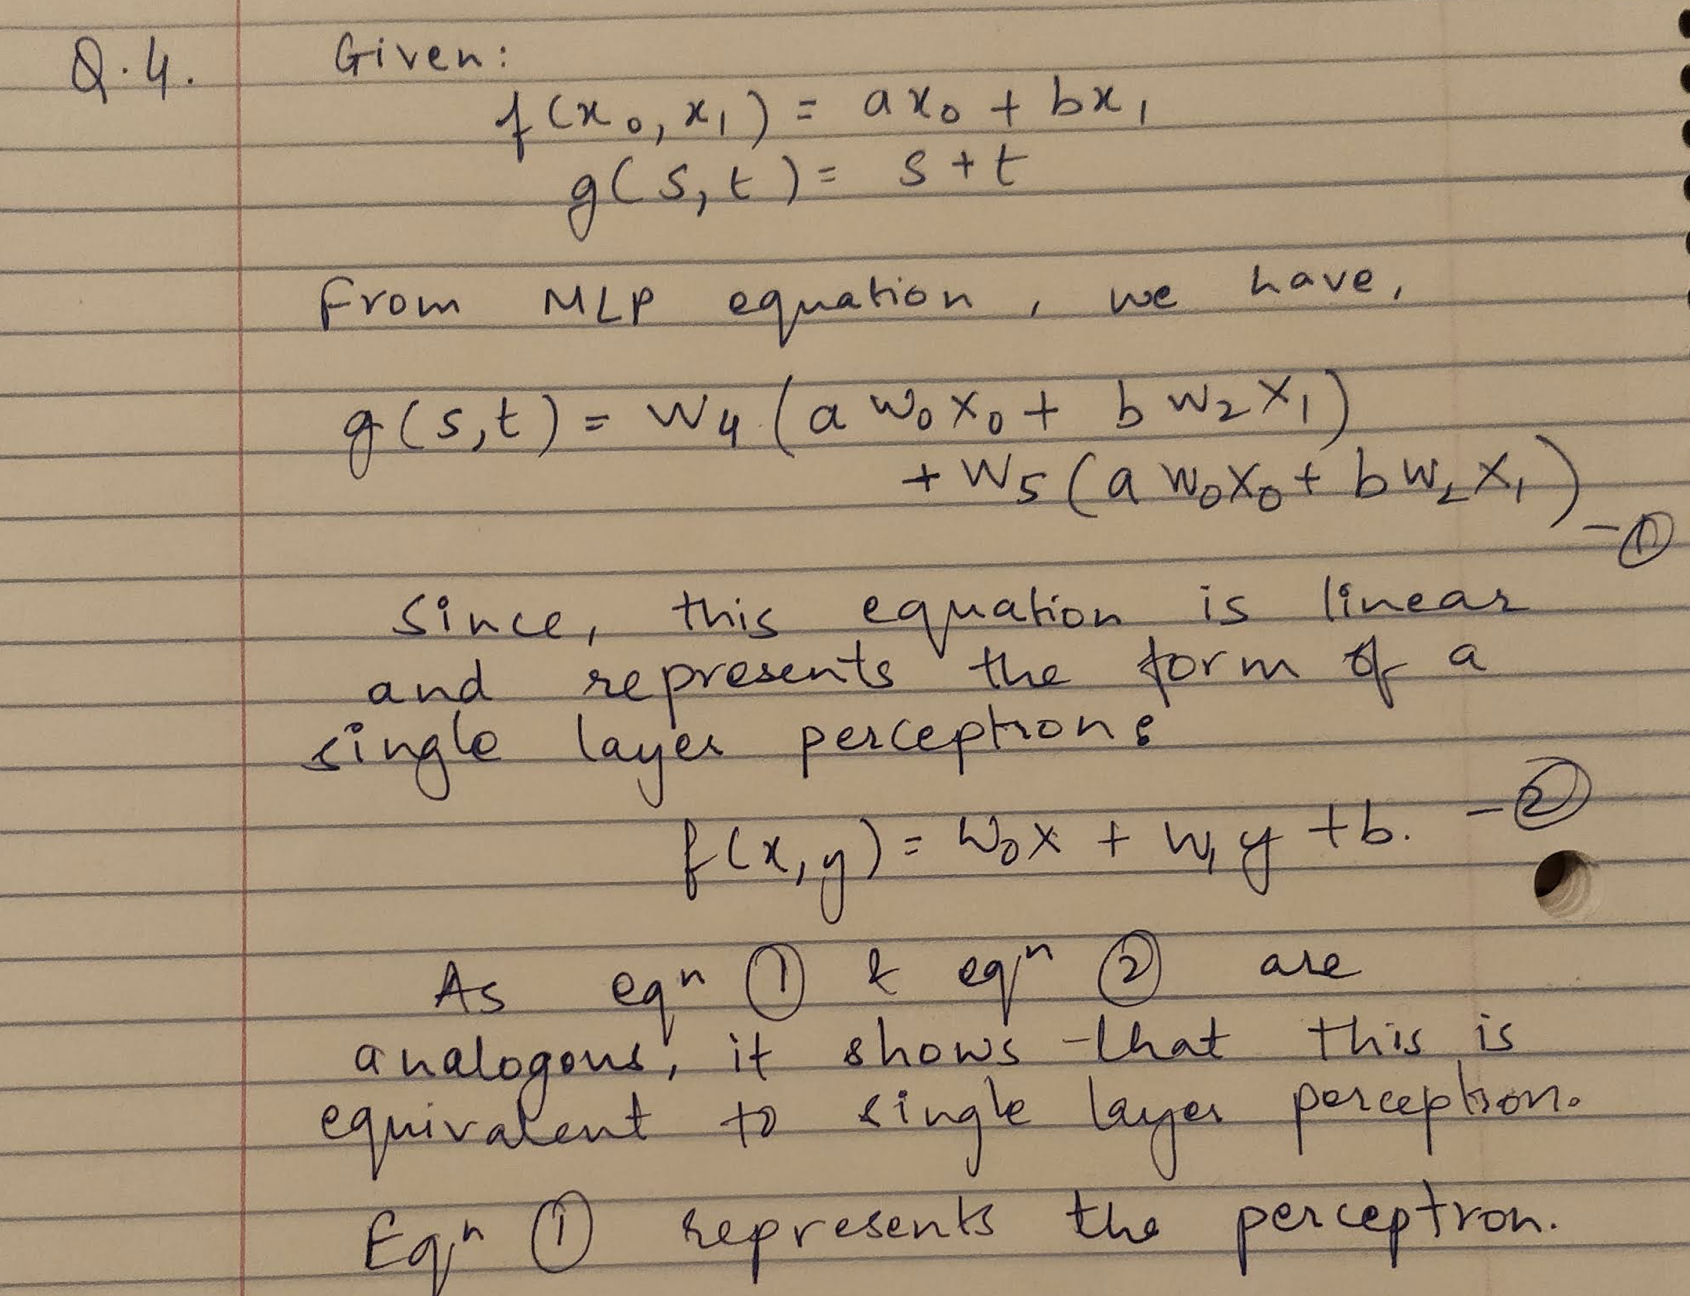 Q.4. Given:
f(x₀, x₁) = ax₀ + bx₁
g(s,t) = s+t
From MLP equation, we have,
g(s,t) = W₄(a W₀X₀ + b W₂X₁)
+ W₅(a W₀X₀ + b W₂X₁) - ①
Since, this equation is linear
and represents the form of a
single layer perceptron:
f(x,y) = W₀x + W₁y + b. - ②
As eqⁿ ① & eqⁿ ② are
analogous, it shows that this is
equivalent to single layer perceptron.
Eqⁿ ① represents the perceptron.